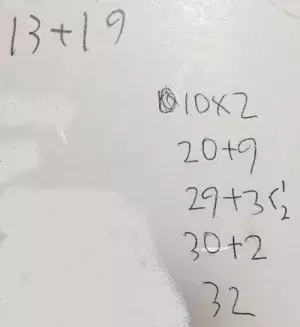 13+19
10x2
20+9
29+3<1
2
30+2
32